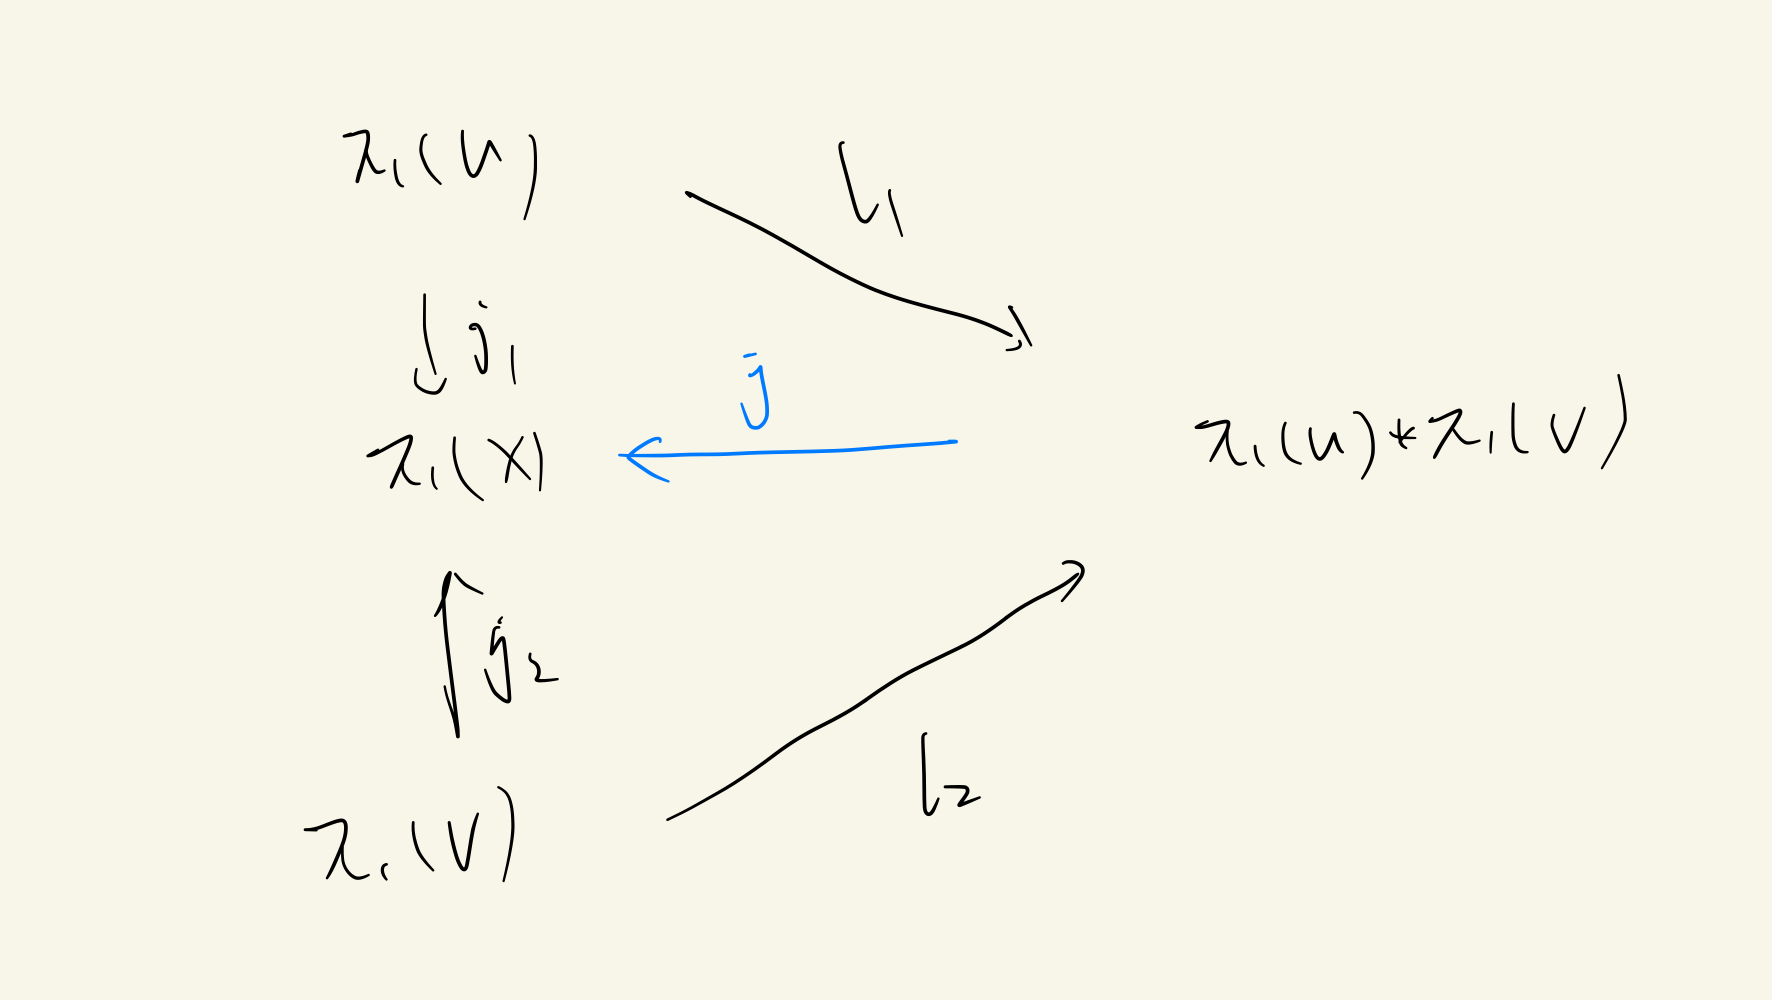 π₁(U)
l₁
j₁
j
π₁(X)
π₁(U)*π₁(V)
j₂
l₂
π₁(V)